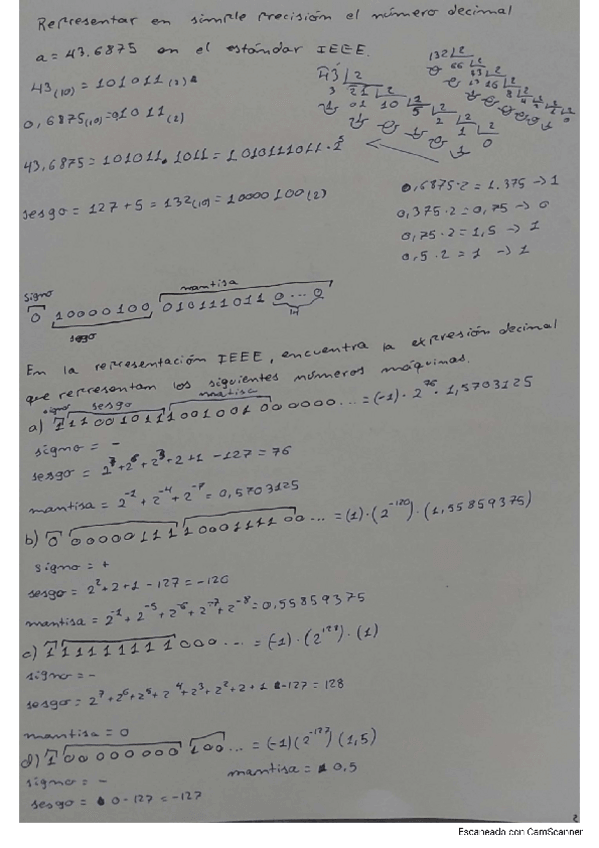 Representar en simple precisión el número decimal
a = 43.6875 en el estándar IEEE.
43(10) = 101011(2)
0,6875(10) = 01011(2)
43,6875 = 101011.1011 = 1010111011 · 2^5
0,6875·2 = 1.375 → 1
0,375·2 = 0,75 → 0
0,75·2 = 1,5 → 1
0,5·2 = 1 → 1
sesgo = 127 + 5 = 132(10) = 10000100(2)
signo mantisa
0 10000100 010111011 0...0
sesgo 14
En la representación IEEE, encuentra la expresión decimal
que representan los siguientes números máquinas.
signo sesgo mantisa
a) 1 11001011 1001001 000000... = (-1) · 2^76 · 1,5703125
signo = -
sesgo = 2^7+2^6+2^3+2+1 -127 = 76
mantisa = 2^-1 + 2^-4 + 2^-7 = 0,5703125
b) 0 00000111 1000111100... = (1)·(2^-120)·(1,55859375)
signo = +
sesgo = 2^2+2+1 -127 = -120
mantisa = 2^-1 + 2^-5 + 2^-6 + 2^-7 + 2^-8 = 0,55859375
c) 1 11111111 000... = (-1)·(2^128)·(1)
signo = -
sesgo = 2^7+2^6+2^5+2^4+2^3+2^2+2+1 -127 = 128
mantisa = 0
d) 1 00000000 100... = (-1)(2^-127)(1,5)
signo = - mantisa = 0,5
sesgo = 0-127 = -127
Escaneado con CamScanner